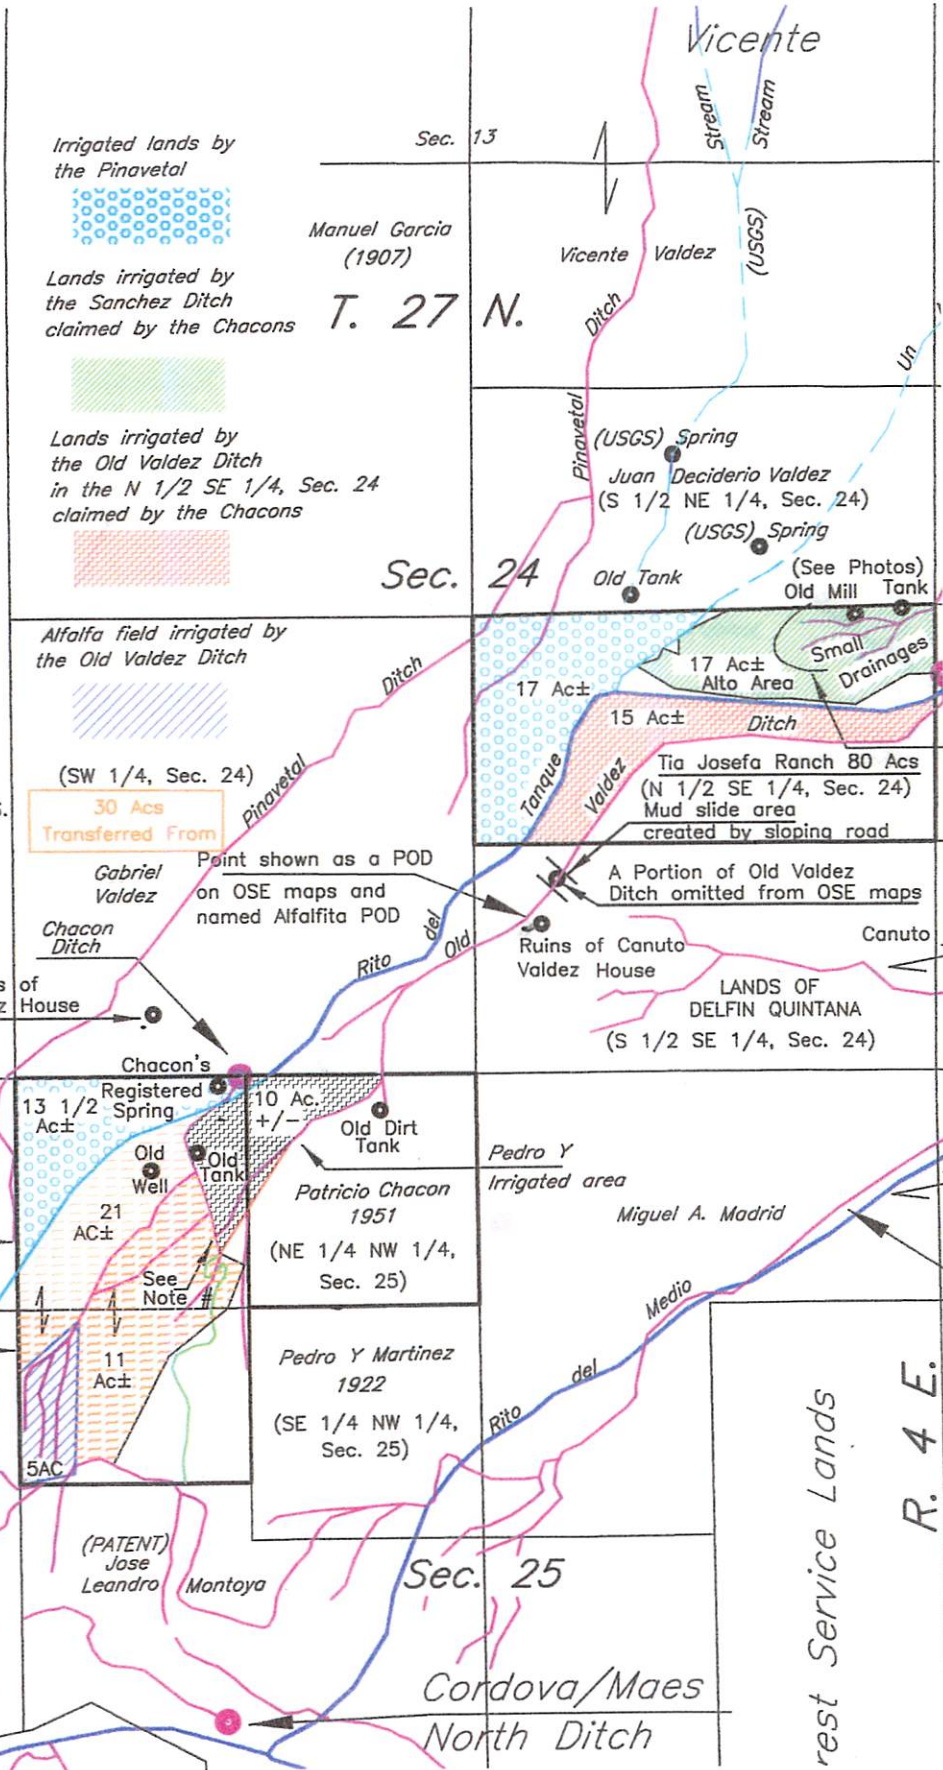 Vicente
Stream
Stream
(USGS)
Sec. 13
Irrigated lands by
the Pinavetal
Manuel Garcia
(1907)
Vicente Valdez
Lands irrigated by
the Sanchez Ditch
claimed by the Chacons
T. 27 N.
Pinavetal Ditch
Un
Lands irrigated by
the Old Valdez Ditch
in the N 1/2 SE 1/4, Sec. 24
claimed by the Chacons
(USGS) Spring
Juan Deciderio Valdez
(S 1/2 NE 1/4, Sec. 24)
(USGS) Spring
Sec. 24
Old Tank
(See Photos)
Old Mill Tank
Alfalfa field irrigated by
the Old Valdez Ditch
(SW 1/4, Sec. 24)
30 Acs
Transferred From
Pinavetal Ditch
17 Ac±
17 Ac±
Alto Area
Small
Drainages
15 Ac±
Ditch
Tanque
Valdez
Tia Josefa Ranch 80 Acs
(N 1/2 SE 1/4, Sec. 24)
Mud slide area
created by sloping road
Gabriel
Valdez
Point shown as a POD
on OSE maps and
named Alfalfita POD
A Portion of Old Valdez
Ditch omitted from OSE maps
Chacon
Ditch
Rito del
Old
Ruins of Canuto
Valdez House
Canuto
s of
z House
LANDS OF
DELFIN QUINTANA
(S 1/2 SE 1/4, Sec. 24)
Chacon's
Registered
Spring
13 1/2
Ac±
10 Ac.
+/-
Old Dirt
Tank
Old
Well
Old
Tank
Pedro Y
Irrigated area
21
AC±
Patricio Chacon
1951
(NE 1/4 NW 1/4,
Sec. 25)
Miguel A. Madrid
See
Note #
Rito del Medio
11
Ac±
Pedro Y Martinez
1922
(SE 1/4 NW 1/4,
Sec. 25)
5AC
R. 4 E.
rest Service Lands
(PATENT)
Jose
Leandro Montoya
Sec. 25
Cordova/Maes
North Ditch